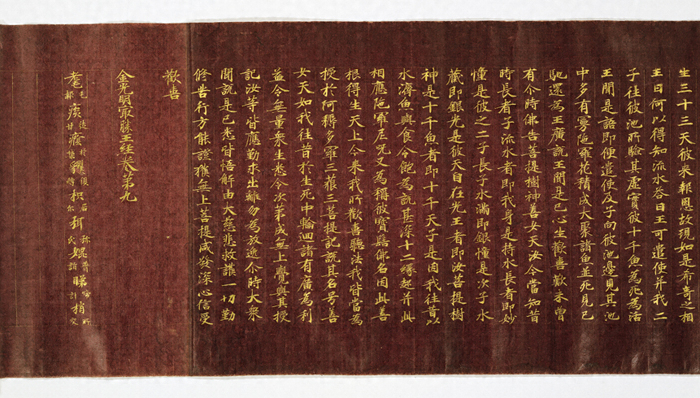 生三十三天彼來報恩故現如是希奇之相
王曰何以得知流水答曰王可遣使并我二
子往彼池所驗其虛實彼十千魚為死為活
王聞是語即便遣使及子向彼池邊見其池
中多有曼陀羅花積成大聚諸魚並死見已
馳還為王廣說王聞是已心生歡喜歎未曾
有尒時佛告菩提樹神善女天汝今當知昔
時長者子流水者即我身是持水長者即妙
幢是彼之二子長子水滿即銀幢是次子水
藏即銀光是彼天自在光王者即汝菩提樹
神是十千魚者即十千天子是因我往昔以
水濟魚與食令飽為說甚深十二緣起并此
相應陀羅尼呪又為稱彼寶髻佛名因此善
根得生天上今來我所歡喜聽法我皆當為
授於阿耨多羅三藐三菩提記說其名号善
女天如我往昔於生死中輪迴諸有廣為利
益令無量眾生悉令次第成無上覺與其授
記汝等皆應勤求出離勿為放逸尒時大眾
聞說是已悉皆悟解由大慈悲救護一切勤
修苦行方能證獲無上菩提咸發深心信受
歡喜
金光明最勝王經卷第九